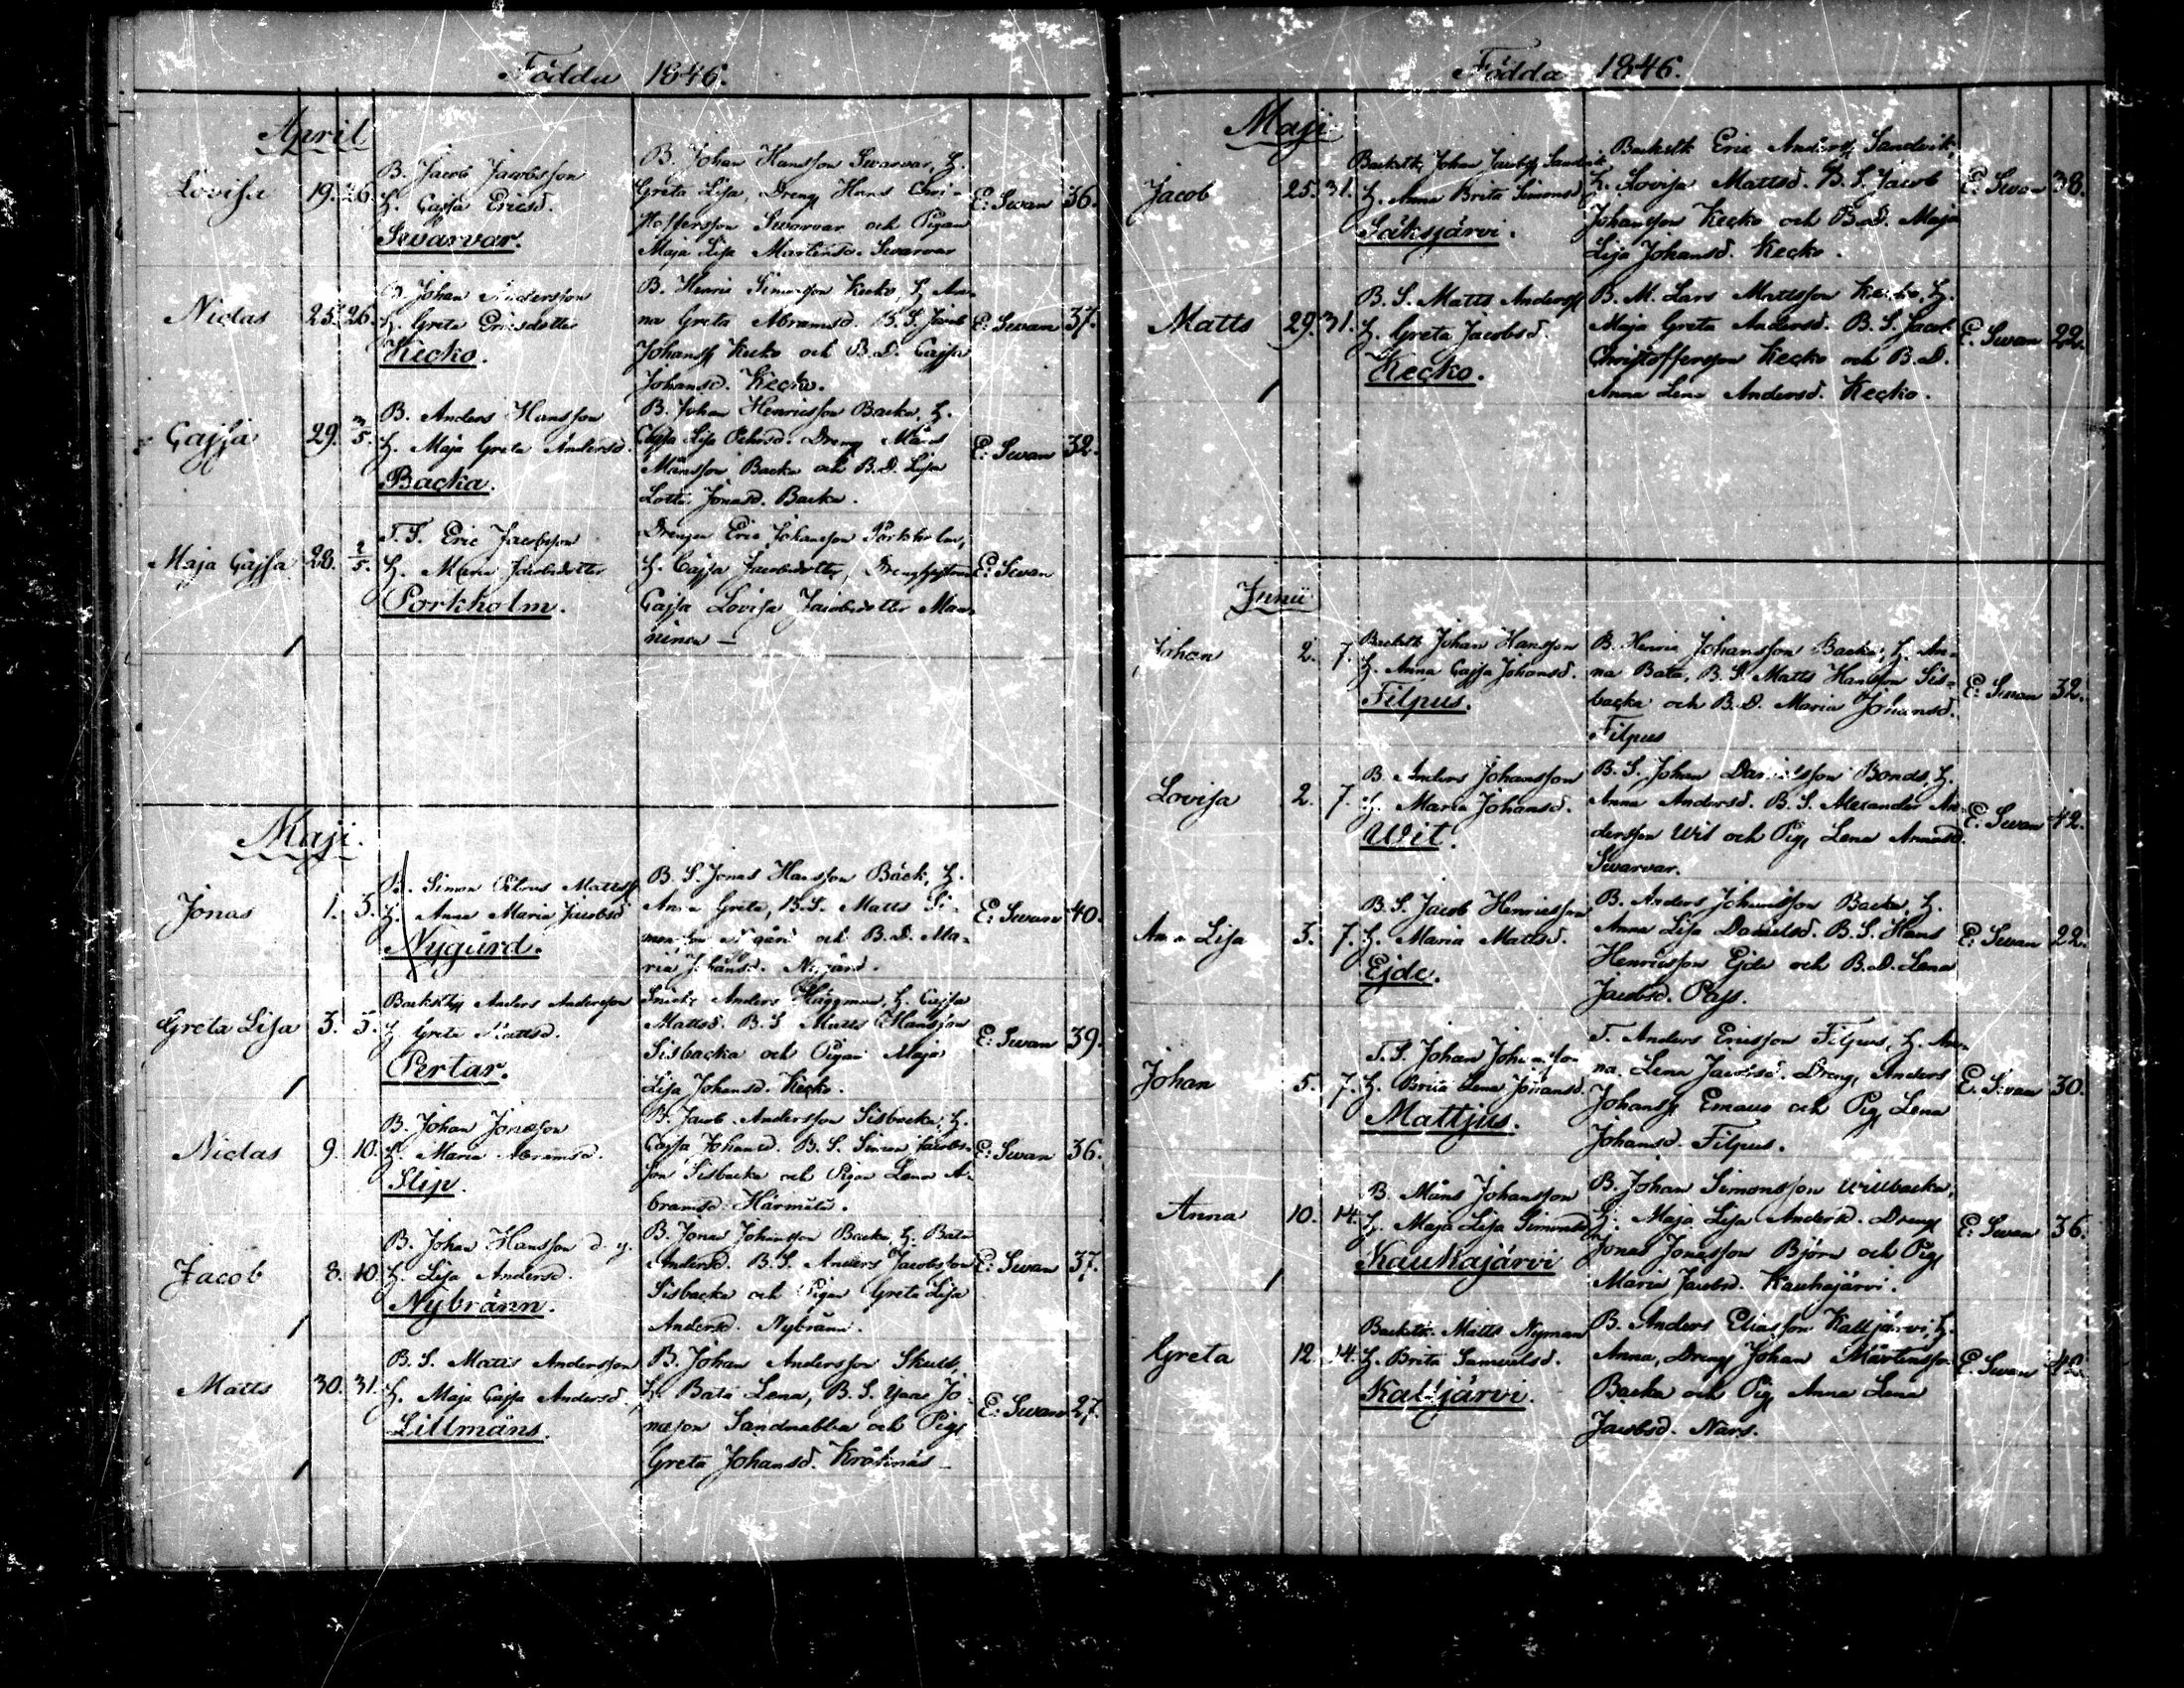 Födda 1846.
April
Lovisa 19. 26. B. Jacob Jacobsson
H. Cajsa Ericsd.
Swarvar.
B. Johan Hansson Swarvar, H.
Greta Lisa, Dreng Hans Chri-
stoffersson Swarvar och Pigan
Maja Lisa Mårtensd. Swarvar
E: Swan 36.
Niclas 25. 26. B. Johan Andersson
H. Greta Ericsdotter
Kecko.
B. Henric Simonsson Kecko, H. An-
na Greta Abramsd. B.S. Jacob
Johanss Kecko och B.D. Cajsa
Johansd. Kecko.
E: Swan 37.
Cajsa 29. 3/5. B. Anders Hansson
H. Maja Greta Andersd.
Backa.
B. Johan Henricsson Backa, H.
Cajsa Lisa Dreng Måns
Månsson Backa och B.D. Lisa
Lotta Jonasd. Backa.
E: Swan 32.
Maja Cajsa 28. 2/5. T. S. Eric Jacobsson
H. Maria Jacobsdotter
Porkholm.
Drengen Eric Johansson Porkholm,
H. Cajsa Jacobsdotter,
Cajsa Lovisa Jacobsdotter Man-
ninen —
E: Swan
Maji.
Jonas 1. 3. B. Simon Petrus Mattss
H. Anna Maria Jacobsd
Nygård.
B. S. Jonas Hansson Bäck, H.
Anna Greta, B.S. Matts Si-
monsson Nygård och B.D. Ma-
ria Johansd. Nygård.
E: Swan 40.
Greta Lisa 3. 3. Anders Andersson
H. Greta Mattsd.
Pertar.
Anders Häggman, H. Cajsa
Mattsd. B.S Matts Hansson
Sisbacka och Pigan Maja
Lisa Johansd. Kecko.
E: Swan 39.
Niclas 9. 10. B. Johan Jonasson
H. Maria Abramsd.
Slip.
B. Jacob Andersson Sisbacka, H.
Cajsa Johansd. B.S. Simon Jacobs-
son Sisbacka och Pigan Lena A-
bramsd. Härmälä.
E: Swan 36.
Jacob 8. 10. B. Johan Hansson d. y.
H. Lisa Andersd.
Nybränn.
B. Jonas Johansson Backa, H. Bata
Andersd. B.S. Anders Jacobsson
Sisbacka och Pigan Greta Lisa
Andersd. Nybränn.
E: Swan 37.
Matts 30. 31. B. S. Matts Andersson
H. Maja Cajsa Andersd.
Lillmåns.
B. Johan Andersson
H. Bata Lena, B.S. Isaac Jo-
nasson Sandnabba och Pig
Greta Johansd. Kråknäs —
E: Swan 27.
Födda 1846.
Maji
Jacob 25. 31. Backstk. Johan Jacobss Sandvik
H. Anna Brita Simonsd
Säksjärvi.
Backstk Eric Anderss Sandvik,
H. Lovisa Mattsd. B.S. Jacob
Johansson Kecko och B.D. Maja
Lisa Johansd. Kecko.
E: Swan 38.
Matts 29. 31. B. S. Matts Anderss
H. Greta Jacobsd.
Kecko.
B. M. Lars Mattsson Kecko, H.
Maja Greta Andersd. B.S. Jacob
Christoffersson Kecko och B.D.
Anna Lena Andersd. Kecko.
E: Swan 22.
Junii
Johan 2. 7. Backstk Johan Hansson
H. Anna Cajsa Johansd.
Filpus.
B. Henric Johansson Backa, H. An-
na Bata, B.S. Matts Hansson Sis-
backa och B.D. Maria Johansd.
Filpus
E: Swan 32.
Lovisa 2. 7. B. Anders Johansson
H. Maria Johansd.
Wit.
B. S. Johan Danielsson Bonds, H.
Anna Andersd. B.S. Alexander An-
dersson Wit och Pig Lena
Swarvar.
E: Swan 42.
Anna Lisa 3. 7. B. S. Jacob Henricsson
H. Maria Mattsd.
Ejde.
B. Anders Johansson Backa, H.
Anna Lisa Danielsd. B.S. Hans
Henricsson Ejde och B.D. Lena
Jacobsd. Pass.
E: Swan 22.
Johan 5. 7. T. S. Johan Johansson
H. Brita Lena Johansd.
Mattjus.
T. Anders Ericsson Filpus, H. An-
na Lena Jacobsd. Dreng Anders
Johanss Emaus och Pig Lena
Johansd. Filpus.
E: Swan 30.
Anna 10. 14. B. Måns Johansson
H. Maja Lisa Simonsd
Kauhajärvi
B. Johan Simonsson Willbacka,
H. Maja Lisa Andersd. Dreng
Jonas Jonasson Björn och Pig
Maria Jacobsd. Kauhajärvi.
E: Swan 36.
Greta 12. 14. Backstk. Matts Nyman
H. Brita Samuelsd.
Kaltjärvi.
B. Anders Eliasson Kaltjärvi, H.
Anna, Dreng Johan Mårtensson
Backa och Pig Anna Lena
Jacobsd. Nars.
E: Swan 42.